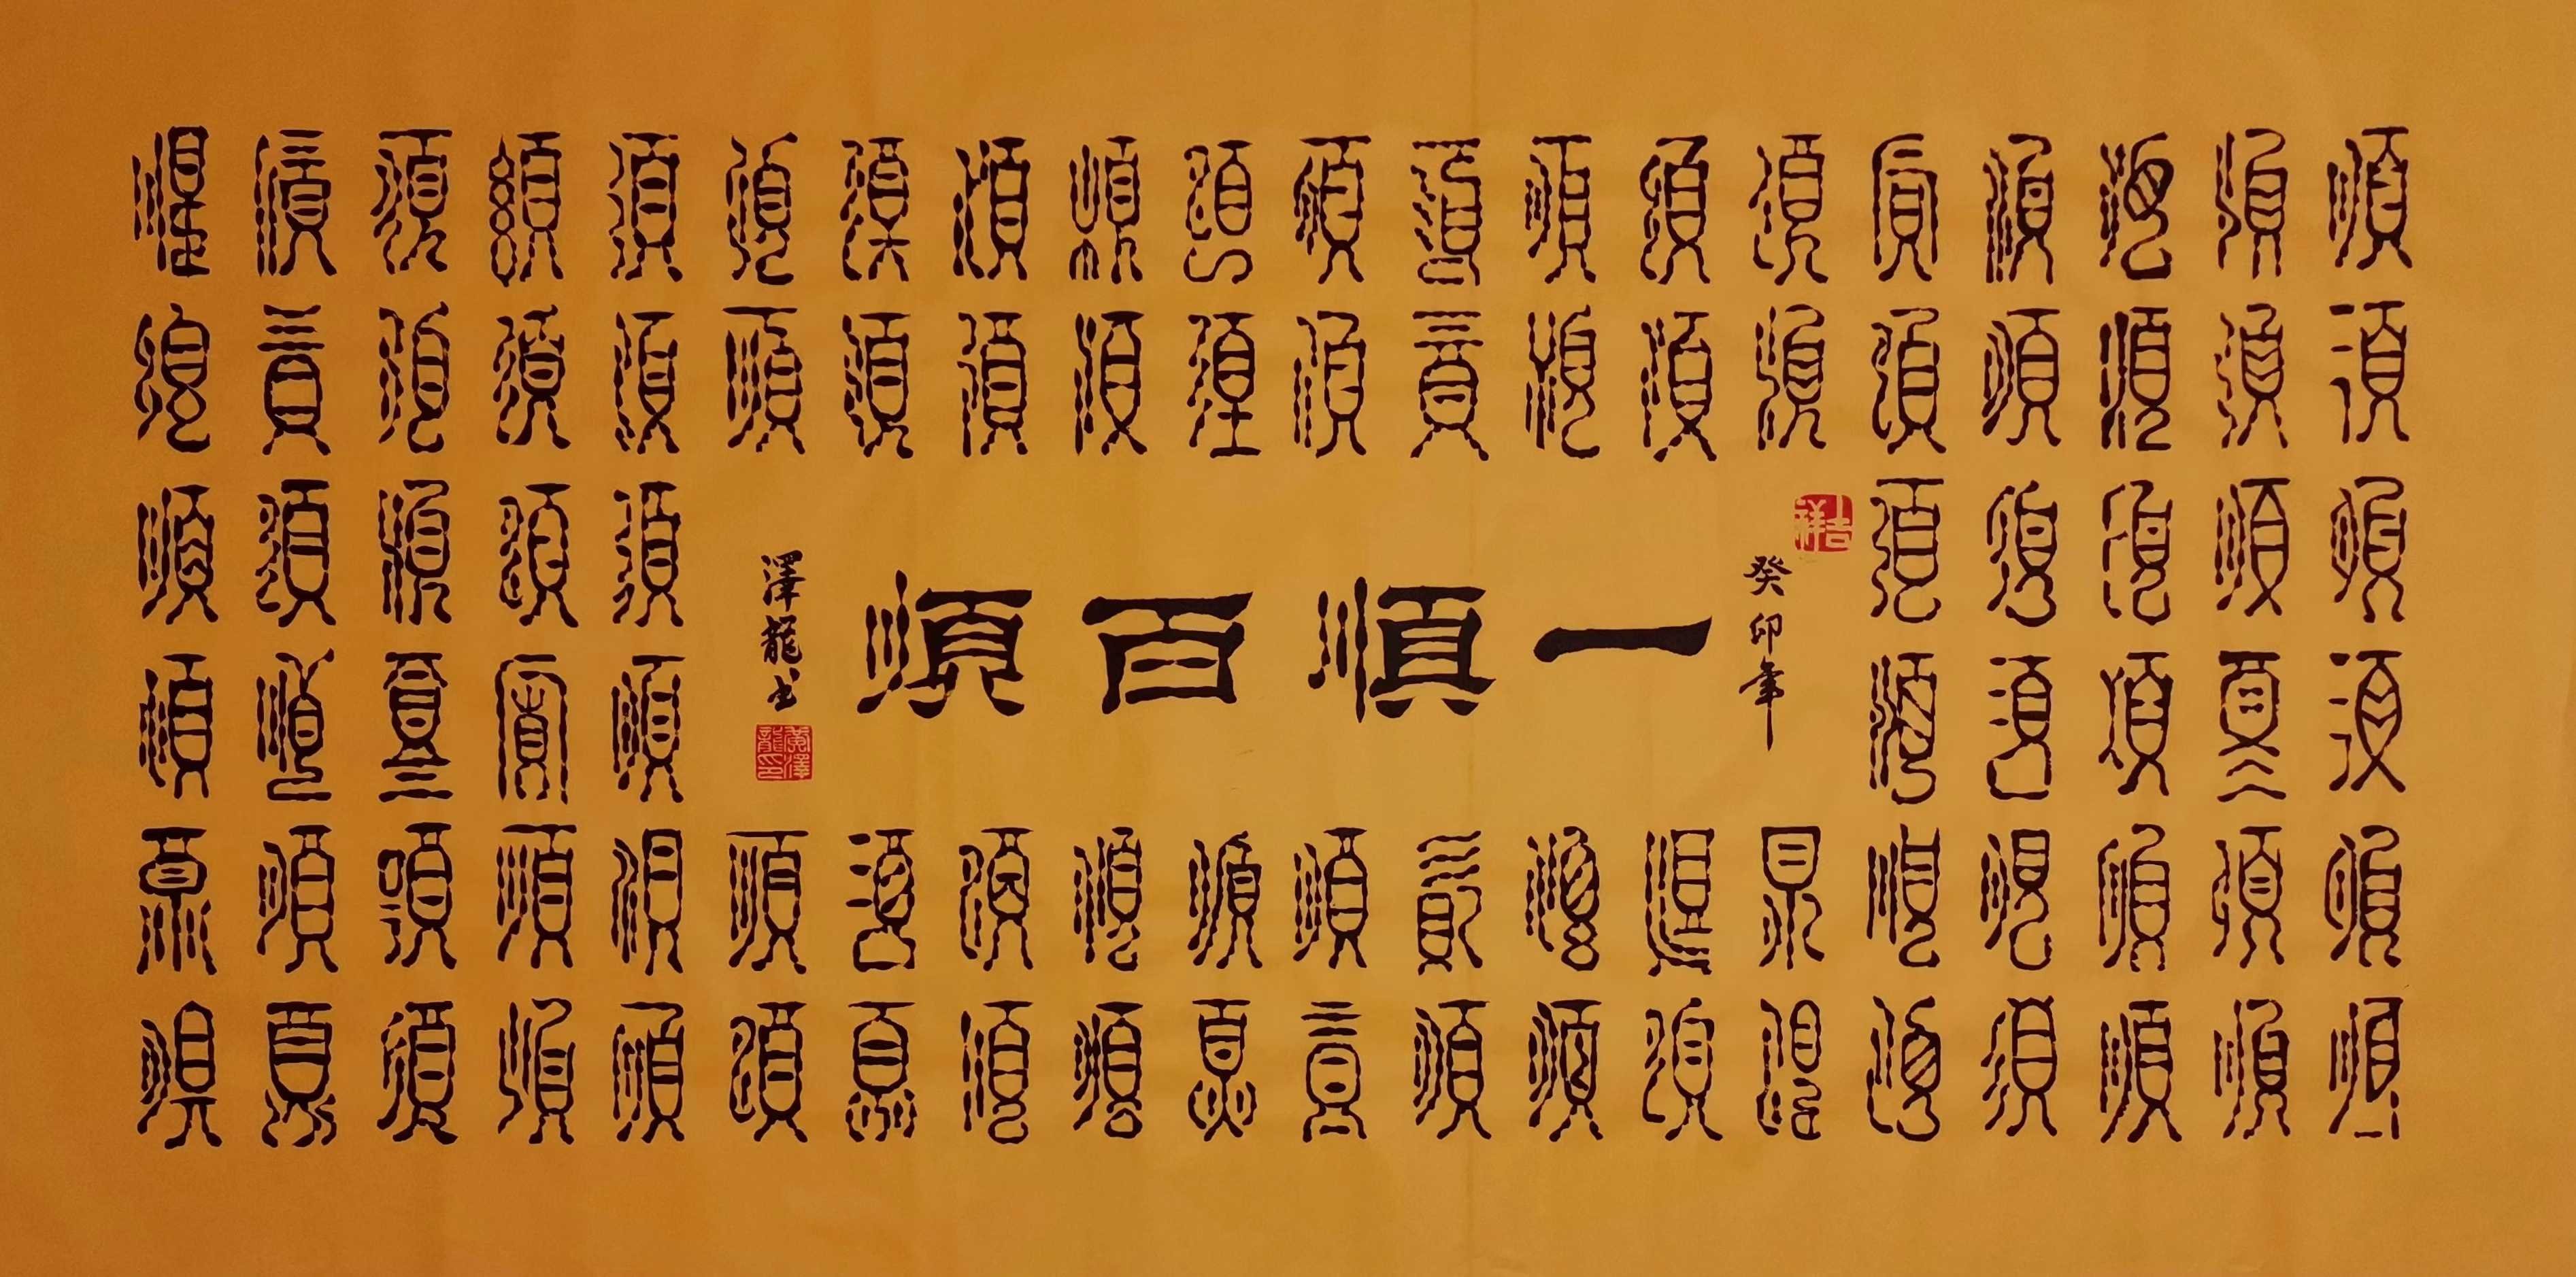 順順順順順順順順順順順順順順順順順順順順
順順順順順順順順順順順順順順順順順順順順
順順順順順
順順順順順
吉祥
癸卯年
一順百順
澤龍书
黃澤龍印
順順順順順
順順順順順
順順順順順順順順順順順順順順順順順順順順
順順順順順順順順順順順順順順順順順順順順